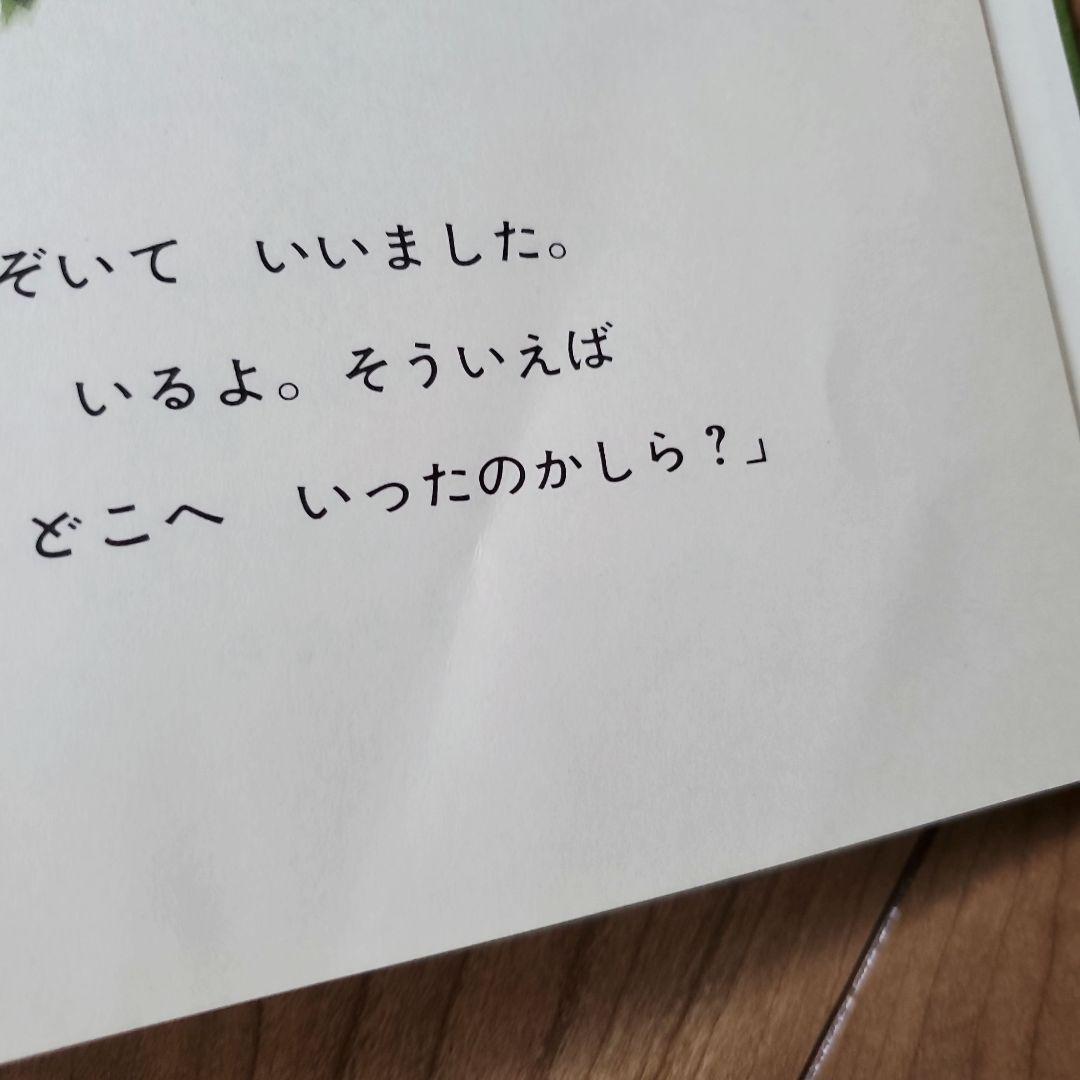 ぞいて　いいました。
いるよ。そういえば
どこへ　いったのかしら？」